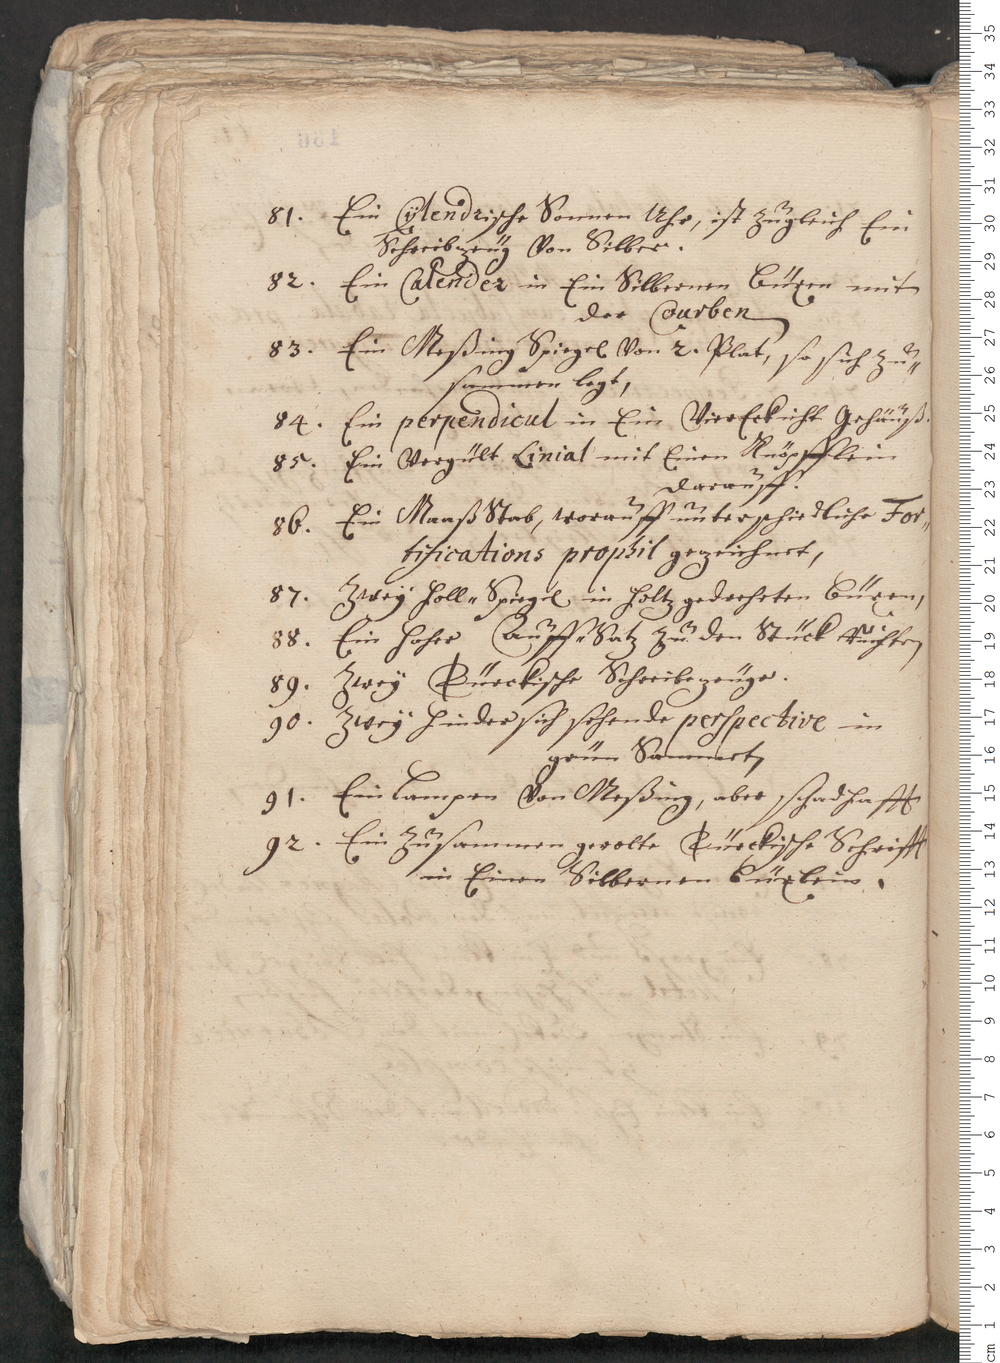 81. Ein Cÿlendrische Sonnen Uhr, ist zugleich Ein
Schreibzeüg Von Silber.
82. Ein Calender in Ein Silbernen Büxen mit
der Courben
83. Ein Meßing Spiegel Von 2. Plat, so sich zu„
sammen legt,
84. Ein perpendicul in Ein ViereEckicht Gehäuß.
85. Ein Vergült Linial mit Einen Knöpfflein
darauff.
86. Ein Maaß Stab, worauff unterschiedliche For„
tifications prophil gezeichnet,
87. Zweÿ Holl„Spiegel in holtz gedrehten Büxen,
88. Ein hoher Auff„Satz zu den Stück richten
89. Zweÿ Türckische Schreibezeüge.
90. Zweÿ hindersich sehende perspective in
grün Sammet,
91. Ein Lampen Von Meßing, aber schadhafft
92. Ein Zusammen gerolte Türckische Schrifft
in Einen Silbernen Büxlein.
35
34
33
32
31
30
29
28
27
26
25
24
23
22
21
20
19
18
17
16
15
14
13
12
11
10
9
8
7
6
5
4
3
2
cm 1